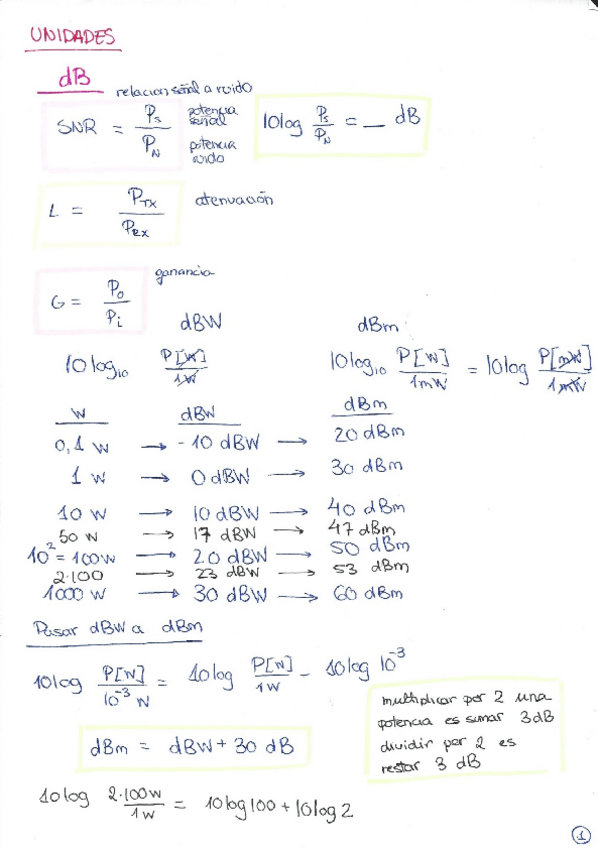 UNIDADES
dB
relacion señal a ruido
SNR = Ps/PN potencia señal potencia ruido 10log Ps/PN = _ dB
L = PTX/PRX atenuación
ganancia
G = Po/Pi
dBW dBm
10log₁₀ P[W]/1W 10log₁₀ P[W]/1mW = 10log P[mW]/1mW
W dBW dBm
0,1 W → -10 dBW → 20 dBm
1 W → 0 dBW → 30 dBm
10 W → 10 dBW → 40 dBm
50 W → 17 dBW → 47 dBm
10² = 100W → 20 dBW → 50 dBm
2·100 → 23 dBW → 53 dBm
1000 W → 30 dBW → 60 dBm
Pasar dBW a dBm
10log P[W]/10⁻³ W = 10log P[W]/1W - 10log 10⁻³
multiplicar por 2 una
potencia es sumar 3dB
dividir por 2 es
restar 3 dB
dBm = dBW + 30 dB
10log 2·100W/1W = 10log100 + 10log2
1